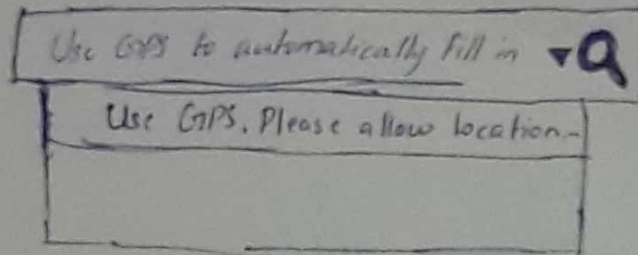 Use GPS to automatically fill in
Use GPS. Please allow location.